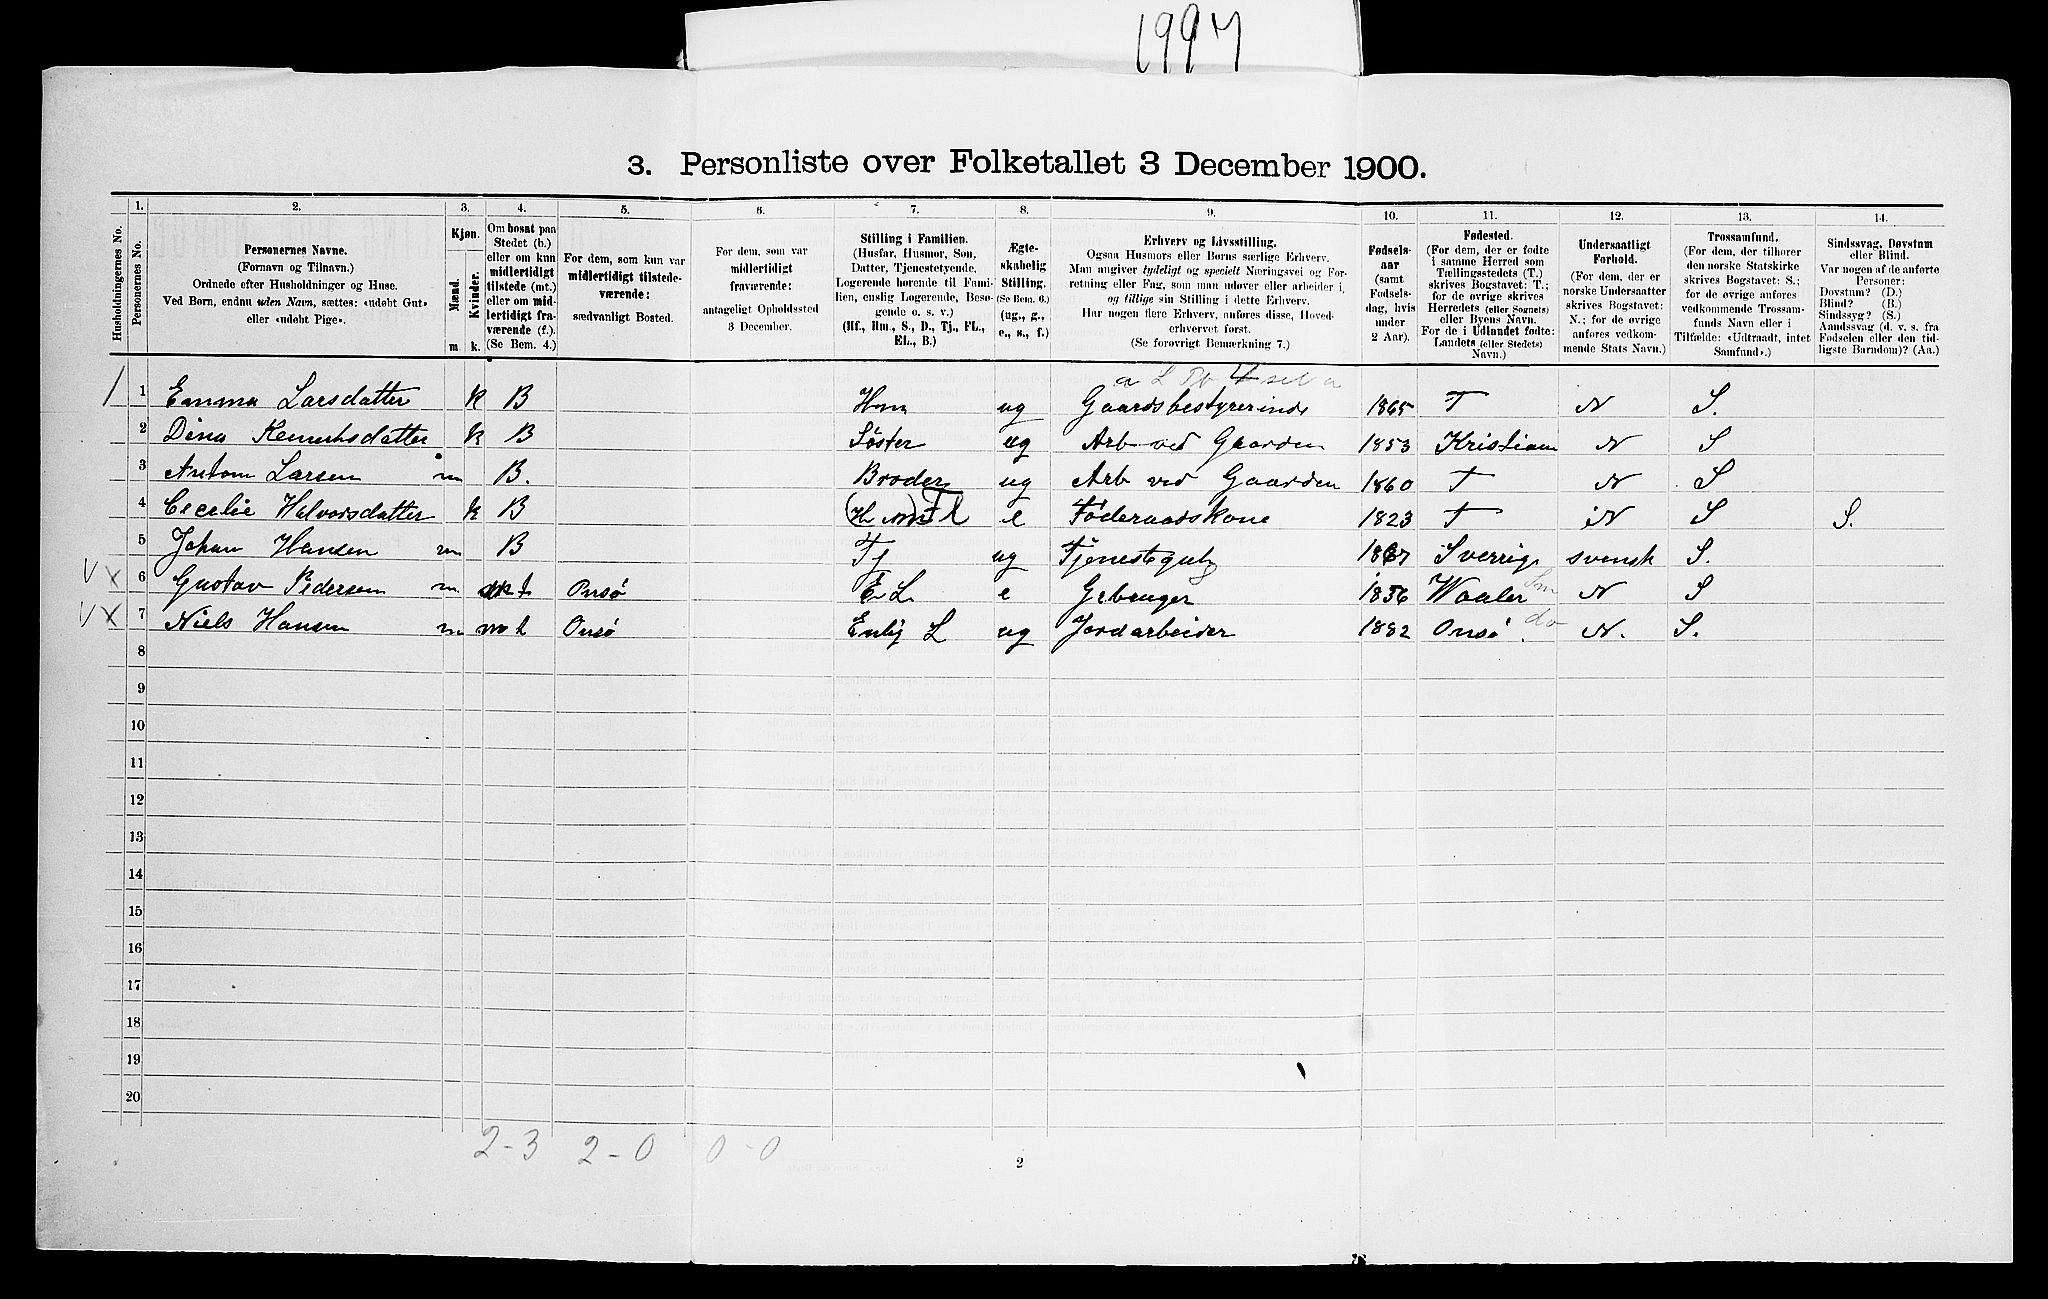 1997
3. Personliste over Folketallet 3 December 1900.
Husholdningernes No.
1. Personernes No.
2. Personernes Navne.
(Fornavn og Tilnavn.)
Ordnede efter Husholdninger og Huse.
Ved Børn, endnu uden Navn, sættes: «udøbt Gut»
eller «udøbt Pige».
3. Kjøn.
Mænd. m
Kvinder. k.
4. Om bosat paa
Stedet (b.)
eller om kun
midlertidigt
tilstede (mt.)
eller om mid-
lertidigt fra-
værende (f.).
(Se Bem. 4.)
5. For dem, som kun var
midlertidigt tilstede-
værende:
sædvanligt Bosted.
6. For dem, som var
midlertidigt
fraværende:
antageligt Opholdssted
3 December.
7. Stilling i Familien.
(Husfar, Husmor, Søn,
Datter, Tjenestetyende,
Logerende hørende til Fami-
lien, enslig Logerende, Besø-
gende o. s. v.)
(Hf., Hm., S., D., Tj., FL.,
EL., B.)
8. Ægte-
skabelig
Stilling.
(Se Bem. 6.)
(ug., g.,
e., s., f.)
9. Erhverv og Livsstilling.
Ogsaa Husmors eller Børns særlige Erhverv.
Man angiver tydeligt og specielt Næringsvei og For-
retning eller Fag, som man udøver eller arbeider i,
og tillige sin Stilling i dette Erhverv.
Har nogen flere Erhverv, anføres disse, Hoved-
erhvervet først.
(Se forøvrigt Bemerkning 7.)
10. Fødsels-
aar
(samt
Fødsels-
dag, hvis
under
2 Aar).
11. Fødested.
(For dem, der er fødte
i samme Herred som
Tællingsstedets (T.)
skrives Bogstavet: T.;
for de øvrige skrives
Herredets (eller Sognets)
eller Byens Navn.
For de i Udlandet fødte:
Landets (eller Stedets)
Navn.)
12. Undersaatligt
Forhold.
(For dem, der er
norske Undersaatter
skrives Bogstavet:
N.; for de øvrige
anføres vedkom-
mende Stats Navn.)
13. Trossamfund.
(For dem, der tilhører
den norske Statskirke
skrives Bogstavet: S.;
for de øvrige anføres
vedkommende Trossam-
funds Navn eller i
Tilfælde: «Udtraadt, intet
Samfund».)
14. Sindssvag, Døvstum
eller Blind.
Var nogen af de anførte
Personer:
Døvstum? (D.)
Blind? (B.)
Sindssyg? (S.)
Aandssvag (d. v. s. fra
Fødselen eller den tid-
ligste Barndom)? (Aa.)
1 Emma Larsdatter k B Hm ug Gaardsbestyrerinde 1865 T N S.
2 Dina k B Søster ug Arb ved Gaarden 1853 Kristiania N S
3 Anton Larsen m B. Broder ug Arb ved Gaarden 1860 T N S
4 Cecelie Halvorsdatter k B (Hm) Fl e Føderaadskone 1823 T N S S.
5 Johan Hansen m B Tj ug Tjenestegut 1867 Sverrig svensk S.
V X 6 Gustav Pedersen m mt Onsø E L e 1856 Waaler Sm N S
V X 7 Niels Hansen m mt Onsø Enlig L ug Jordarbeider 1882 Onsø do N. S.
8
9
10
11
12
13
14
15
16
17
18
19
20
2-3 2-0 0-0
2